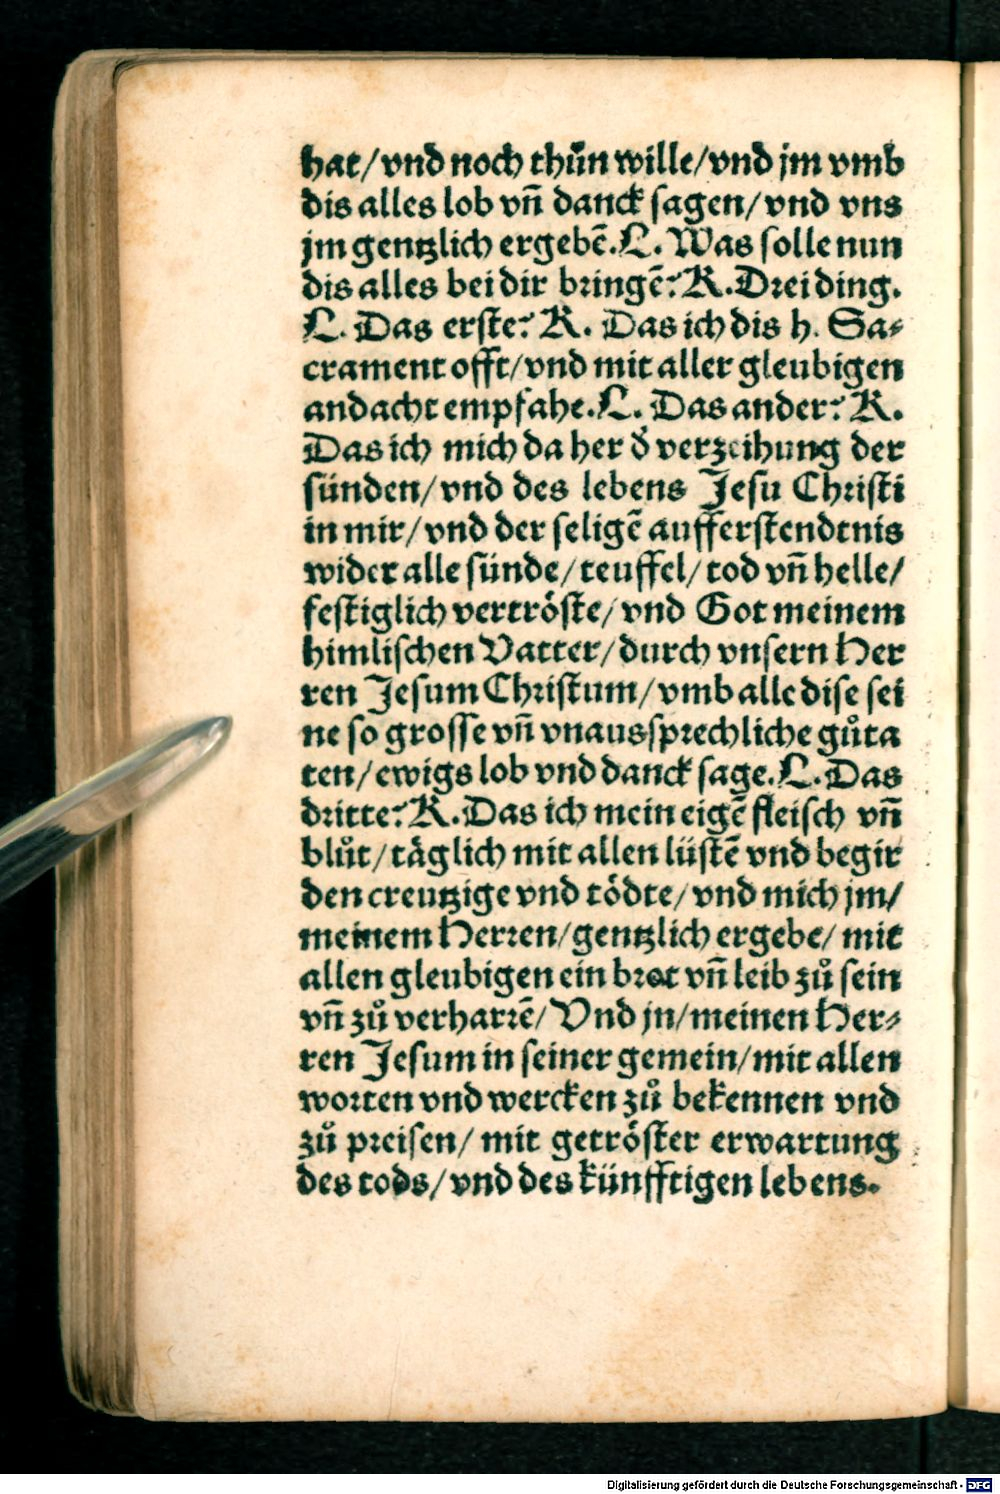 hat/vnd noch thůn wille/vnd jm vmb
dis alles lob vñ danck sagen/vnd vns
jm gentzlich ergebē.L. Was solle nun
dis alles bei dir bringē? K.Drei ding.
L. Das erste? K. Das ich dis h. Sa-
crament offt/vnd mit aller gleubigen
andacht empfahe.L. Das ander? K.
Das ich mich da her d' verzeihung der
sünden/vnd des lebens Jesu Christi
in mir/vnd der seligē aufferstendtnis
wider alle sünde/teuffel/tod vñ helle/
festiglich vertröste/vnd Got meinem
himlischen Vatter/durch vnsern Her
ren Jesum Christum/vmb alle dise sei
ne so grosse vñ vnaussprechliche gůta
ten/ewigs lob vnd danck sage.L.Das
dritte? K.Das ich mein eigē fleisch vñ
blůt/täglich mit allen lüstē vnd begir
den creutzige vnd tödte/vnd mich jm/
meinem Herren/gentzlich ergebe/mit
allen gleubigen ein brot vñ leib zů sein
vñ zů verharrē/Vnd jn/meinen Her-
ren Jesum in seiner gemein/mit allen
worten vnd wercken zů bekennen vnd
zů preisen/ mit getröster erwartung
des tods/vnd des künfftigen lebens.
Digitalisierung gefördert durch die Deutsche Forschungsgemeinschaft - DFG